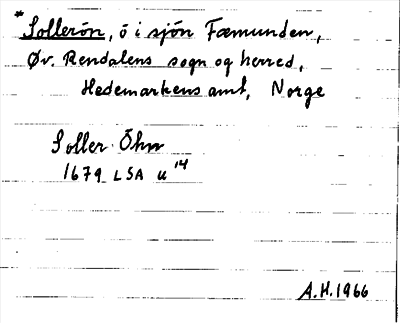 *Sollerön, ö i sjön Fæmunden,
Øv. Rendalens sogn og herred,
Hedemarkens amt, Norge
Soller Öhn
1679 LSA U 14
A.H. 1966